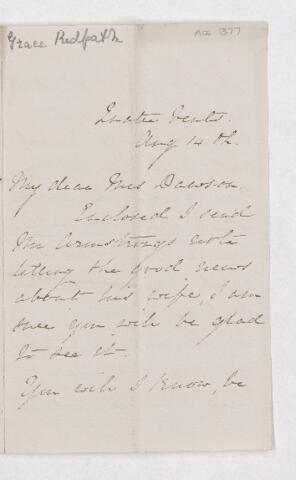 Grace Redpath
Acc 1377
Quatre Vents.
Aug 14th.
My dear Mrs Dawson
Enclosed I send
Mr Armstrongs note
telling the good news
about his wife, I am
sure you will be glad
to see it.
You will I know, be